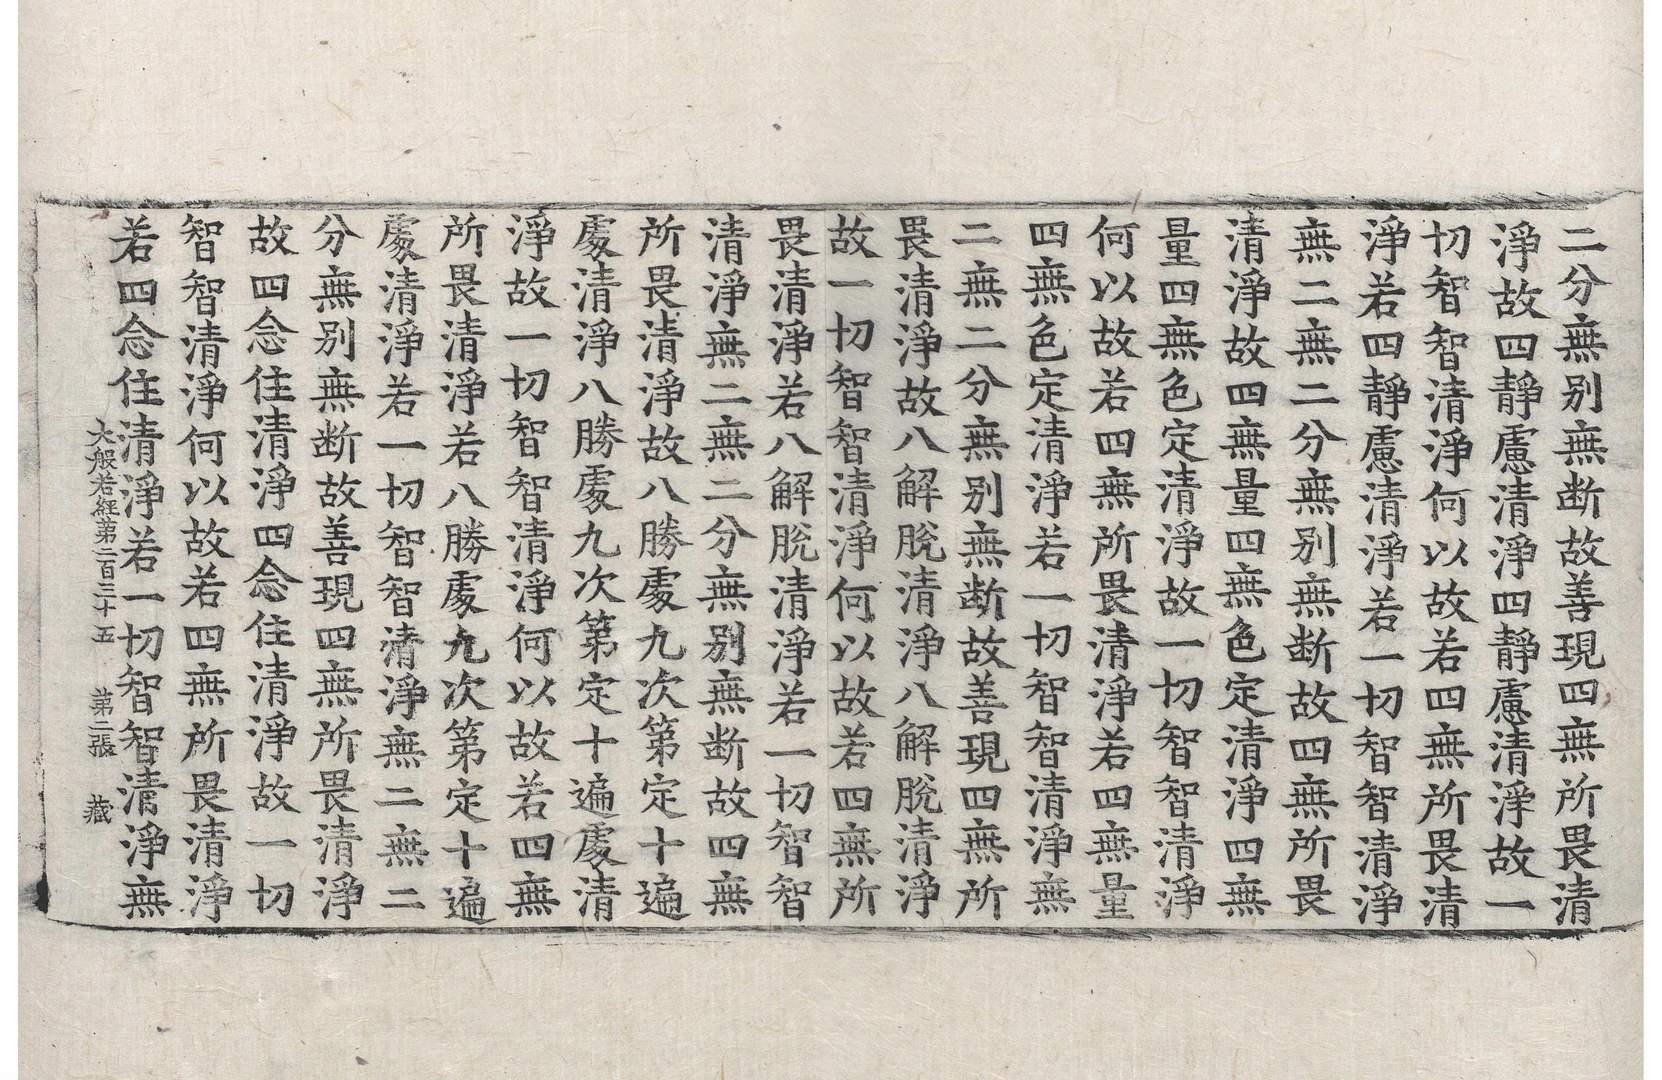 二分無别無断故善現四無所畏清
淨故四靜慮清淨四靜慮清淨故一
切智智清淨何以故若四無所畏清
淨若四靜慮清淨若一切智智清淨
無二無二分無别無断故四無所畏
清淨故四無量四無色定清淨四無
量四無色定清淨故一切智智清淨
何以故若四無所畏清淨若四無量
四無色定清淨若一切智智清淨無
二無二分無别無断故善現四無所
畏清淨故八解脫清淨八解脫清淨
故一切智智清淨何以故若四無所
畏清淨若八解脫清淨若一切智智
清淨無二無二分無别無断故四無
所畏清淨故八勝處九次第定十遍
處清淨八勝處九次第定十遍處清
淨故一切智智清淨何以故若四無
所畏清淨若八勝處九次第定十遍
處清淨若一切智智清淨無二無二
分無别無断故善現四無所畏清淨
故四念住清淨四念住清淨故一切
智智清淨何以故若四無所畏清淨
若四念住清淨若一切智智清淨無
大般若経第二百三十五 第二張 藏